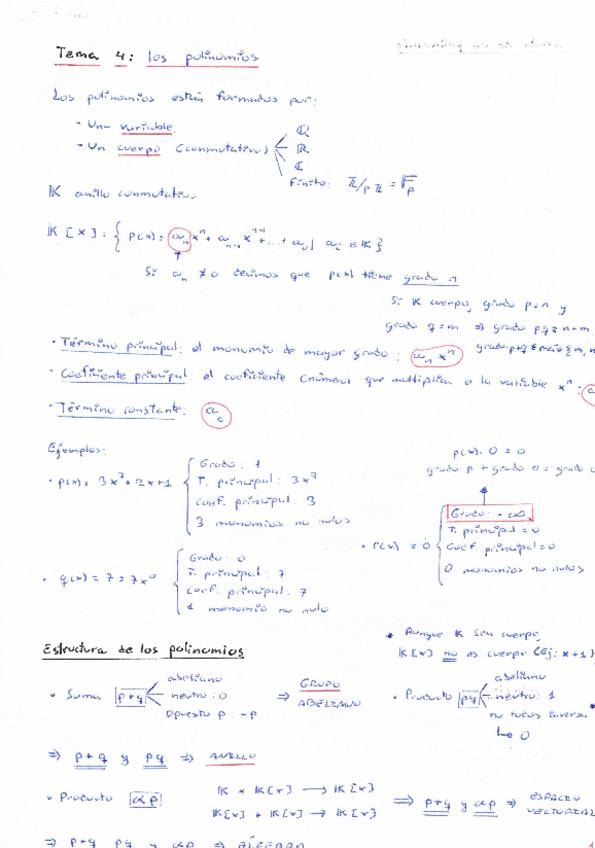 Tema 4: los polinomios
Los polinomios están formados por:
- Una variable.
- Un cuerpo (conmutativo) ℚ ℝ ℂ
finito: ℤ/pℤ = 𝔽p
𝕂 anillo conmutativo
𝕂[X] = { p(x) = aₙxⁿ + aₙ₋₁xⁿ⁻¹ + ... + a₀ | aᵢ ∈ 𝕂 }
Si aₙ ≠ 0 decimos que p(x) tiene grado n
Si K cuerpo, grado p = n y
grado q = m ⇒ grado pq = n + m
grado p+q ≤ máx{m, n
· Término principal: el monomio de mayor grado: aₙxⁿ
· Coeficiente principal: el coeficiente (número) que multiplica a la variable xⁿ: a
· Término constante: a₀
Ejemplos:
· p(x) = 3x⁷ + 2x + 1
Grado: 7
T. principal: 3x⁷
Coef. principal: 3
3 monomios no nulos
p(x) · 0 = 0
grado p + grado 0 = grado
· r(x) = 0
Grado: -∞
T. principal = 0
Coef principal = 0
0 monomios no nulos
· q(x) = 7 = 7x⁰
Grado: 0
T. principal: 7
Coef. principal: 7
1 monomio no nulo
Estructura de los polinomios
* Aunque K sea cuerpo,
K[x] no es cuerpo (Ej: x+1)
· Suma p+q
abeliano
neutro: 0
Opuesto p: -p
⇒ GRUPO ABELIANO
· Producto pq
abeliano
neutro: 1
no todos inverso
↳ 0
⇒ p+q y pq ⇒ ANILLO
· Producto αp
𝕂 × 𝕂[x] → 𝕂[x]
𝕂[x] + 𝕂[x] → 𝕂[x]
⇒ p+q y αp ⇒ ESPACIO VECTORIAL
⇒ p+q pq y αp ⇒